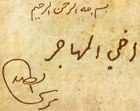 بسم الله الرحمن الرحيم
أخي المهاجر